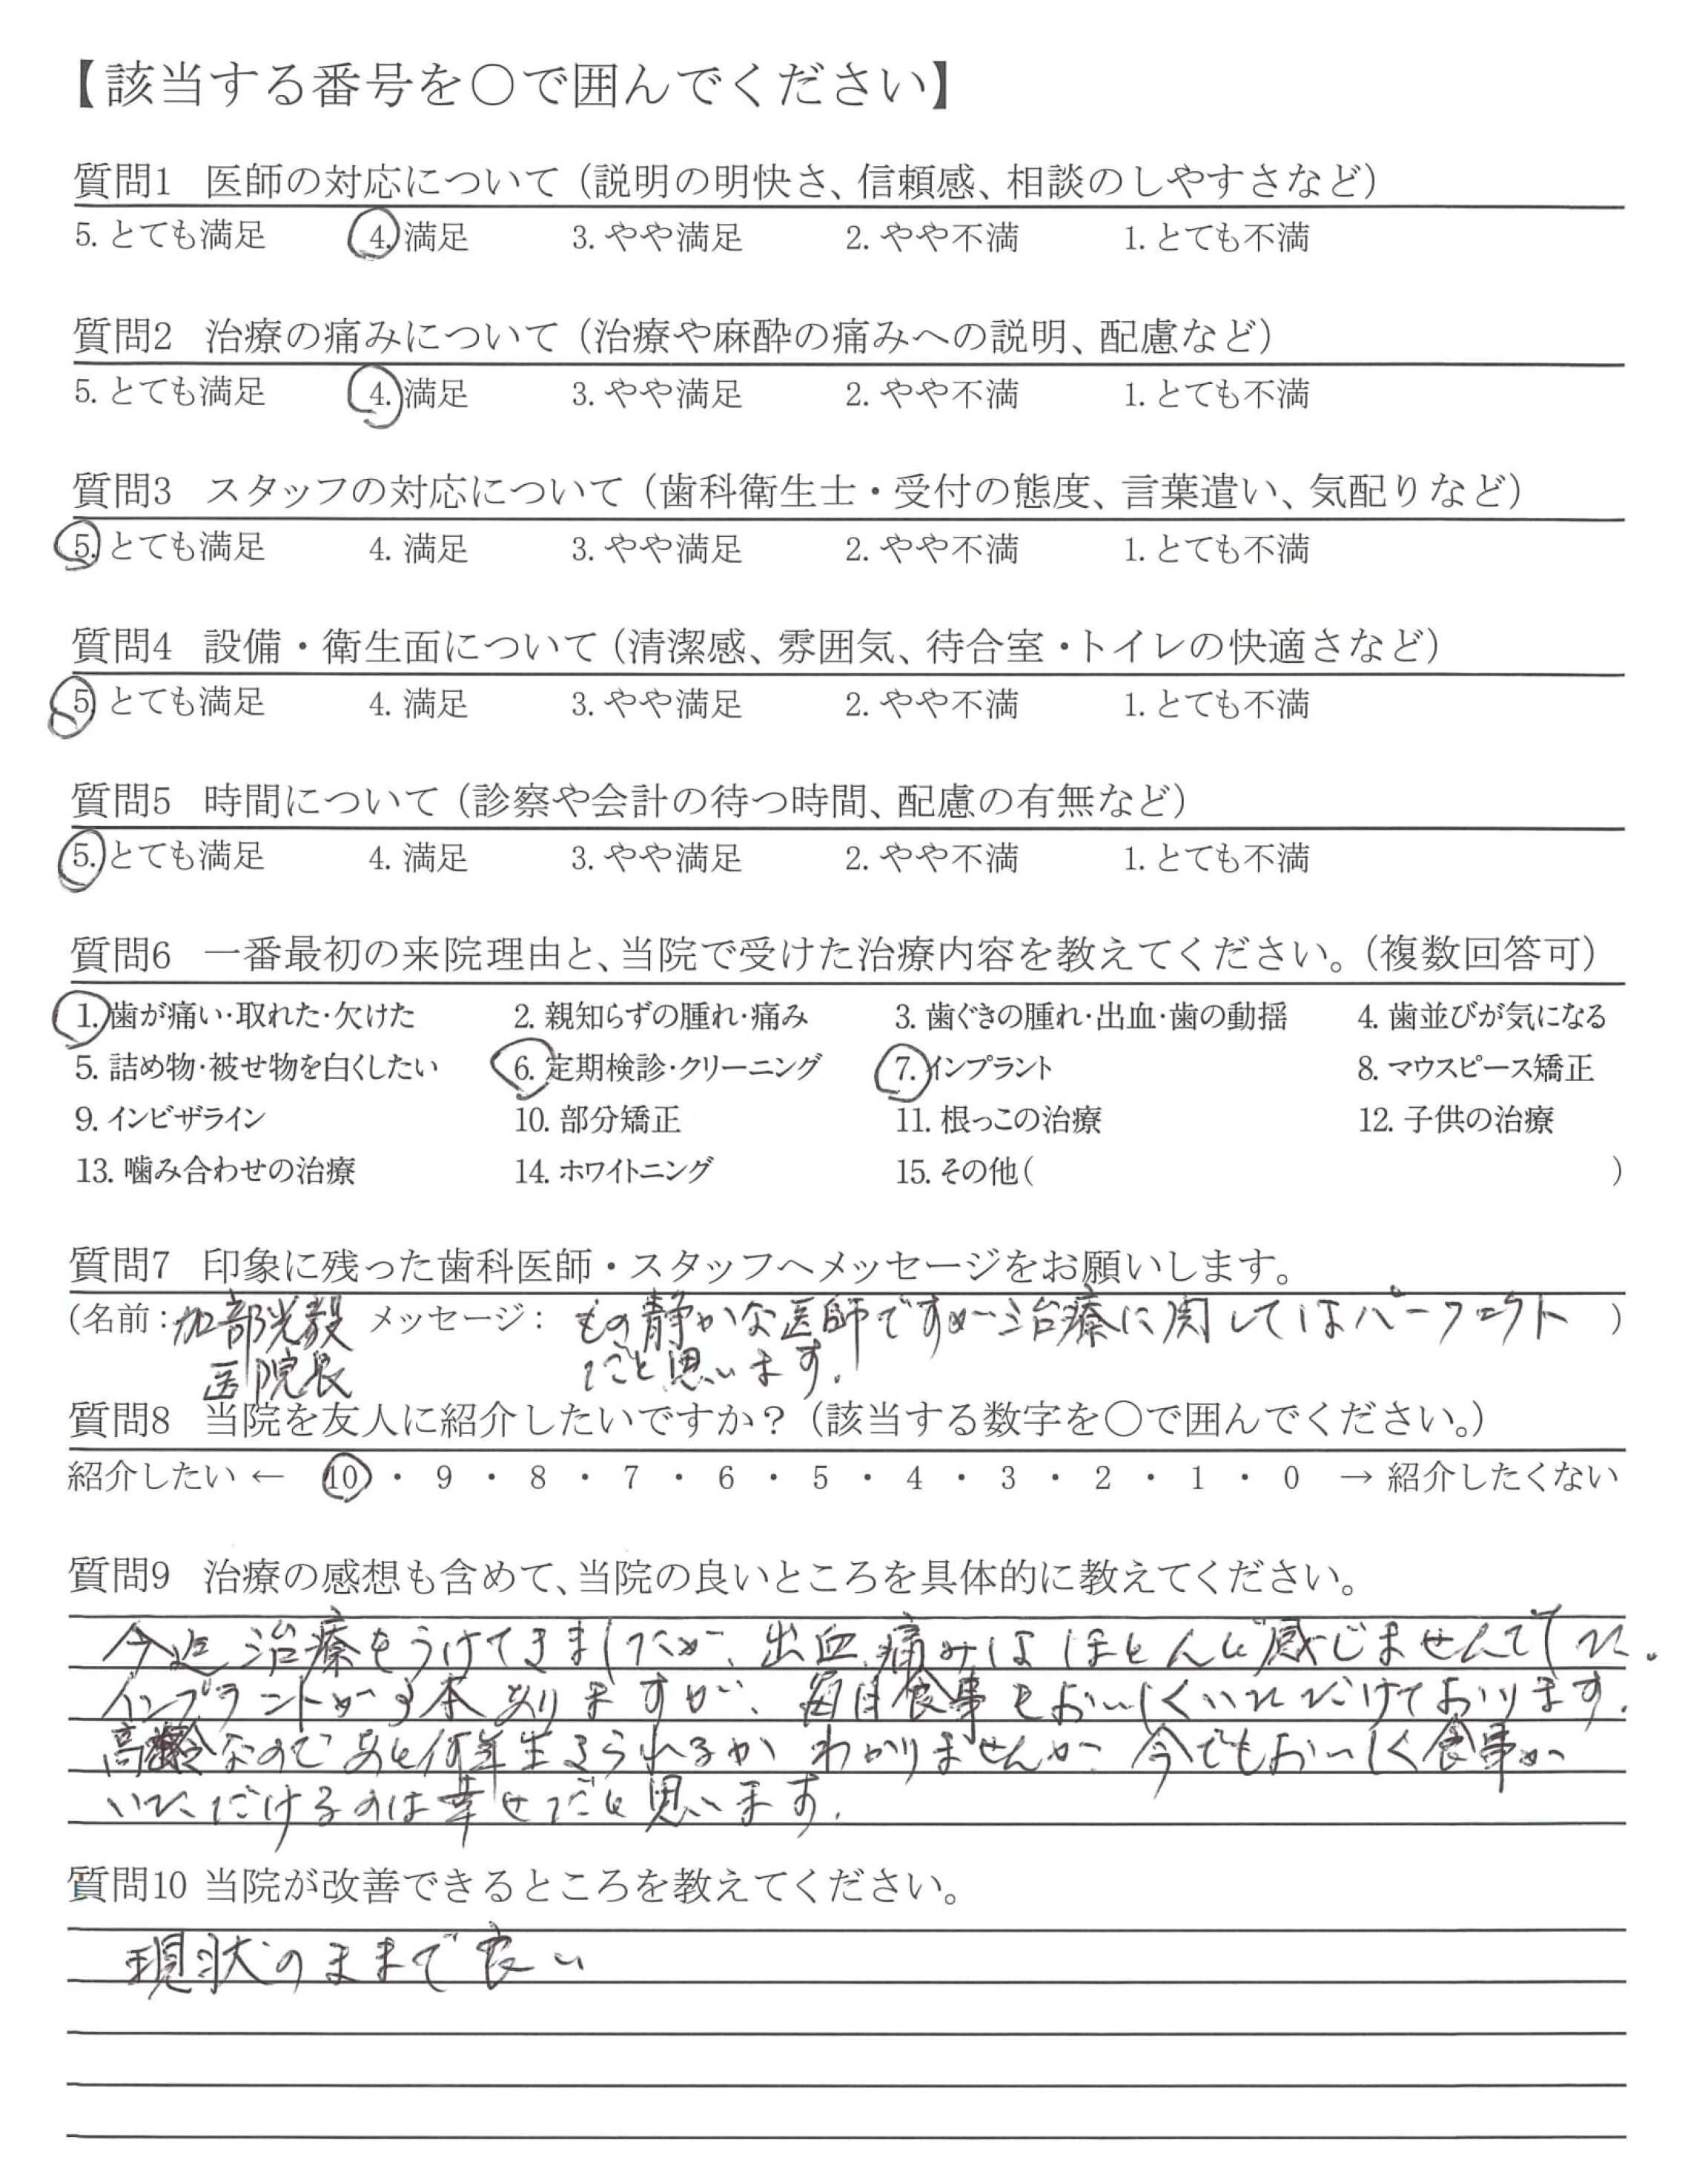 【該当する番号を〇で囲んでください】
質問1 医師の対応について（説明の明快さ、信頼感、相談のしやすさなど）
5. とても満足 4. 満足 3. やや満足 2. やや不満 1. とても不満
質問2 治療の痛みについて（治療や麻酔の痛みへの説明、配慮など）
5. とても満足 4. 満足 3. やや満足 2. やや不満 1. とても不満
質問3 スタッフの対応について（歯科衛生士・受付の態度、言葉遣い、気配りなど）
5. とても満足 4. 満足 3. やや満足 2. やや不満 1. とても不満
質問4 設備・衛生面について（清潔感、雰囲気、待合室・トイレの快適さなど）
5. とても満足 4. 満足 3. やや満足 2. やや不満 1. とても不満
質問5 時間について（診察や会計の待つ時間、配慮の有無など）
5. とても満足 4. 満足 3. やや満足 2. やや不満 1. とても不満
質問6 一番最初の来院理由と、当院で受けた治療内容を教えてください。（複数回答可）
1. 歯が痛い・取れた・欠けた 2. 親知らずの腫れ・痛み 3. 歯ぐきの腫れ・出血・歯の動揺 4. 歯並びが気になる
5. 詰め物・被せ物を白くしたい 6. 定期検診・クリーニング 7. インプラント 8. マウスピース矯正
9. インビザライン 10. 部分矯正 11. 根っこの治療 12. 子供の治療
13. 噛み合わせの治療 14. ホワイトニング 15. その他（ ）
質問7 印象に残った歯科医師・スタッフへメッセージをお願いします。
（名前：加部光毅 メッセージ： もの静かな医師ですが治療に関してはパーフェクト ）
医院長 だと思います。
質問8 当院を友人に紹介したいですか？（該当する数字を〇で囲んでください。）
紹介したい ← 10 ・ 9 ・ 8 ・ 7 ・ 6 ・ 5 ・ 4 ・ 3 ・ 2 ・ 1 ・ 0 → 紹介したくない
質問9 治療の感想も含めて、当院の良いところを具体的に教えてください。
今迄治療をうけてきましたが、出血、痛みはほとんど感じませんでした。
インプラントが3本ありますが、毎日食事もおいしくいただけております。
高齢なのであと何年生きられるかわかりませんが、今でもおいしく食事が
いただけるのは幸せだと思います。
質問10 当院が改善できるところを教えてください。
現状のままで良い